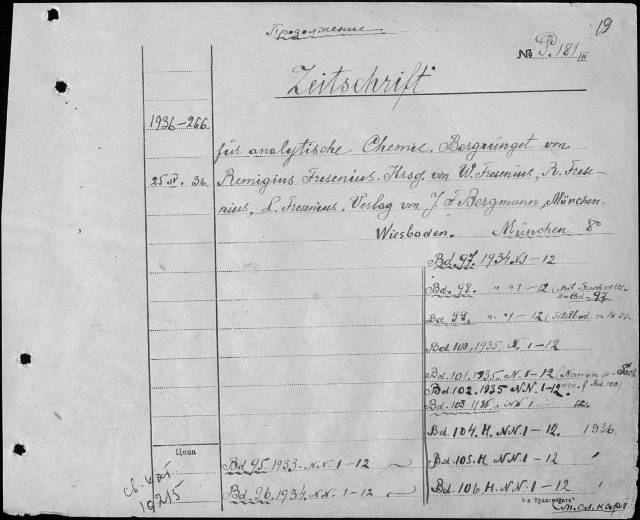 Продолжение
19
No P. 181 III
Zeitschrift
1936-266.
für analytische Chemie. Bergrünget von
25 IV. 36. Remigius Fresenius. Hrsg. von W. Fresenius, R. Frese-
nius, L. Fresenius. Verlag von J F Bergmann, München.
Wiesbaden. München 8°
Bd. 97. 1934 N 1-12
Bd. 98. " " 1-12 (Mit Sachverz.
zu Bd. 97
Bd. 99. " " 1-12 (Titelbd.
Bd 100, 1935 N. 1-12
Bd. 101. 1935. N. 1-12 (Namen u. Sach
Bd. 102. 1935 NN. 1-12. verz. f. Bd. 100)
Bd. 103 1935. NN 1- 12.
Bd. 104. H. NN. 1-12. 1936.
Цена
Bd. 95. 1933. N.N. 1-12
Bd. 105. H. NN. 1-12 "
Bd. 96. 1934. NN. 1-12
Bd. 106 H. NN. 1-12 "
19215
См. сл. карт